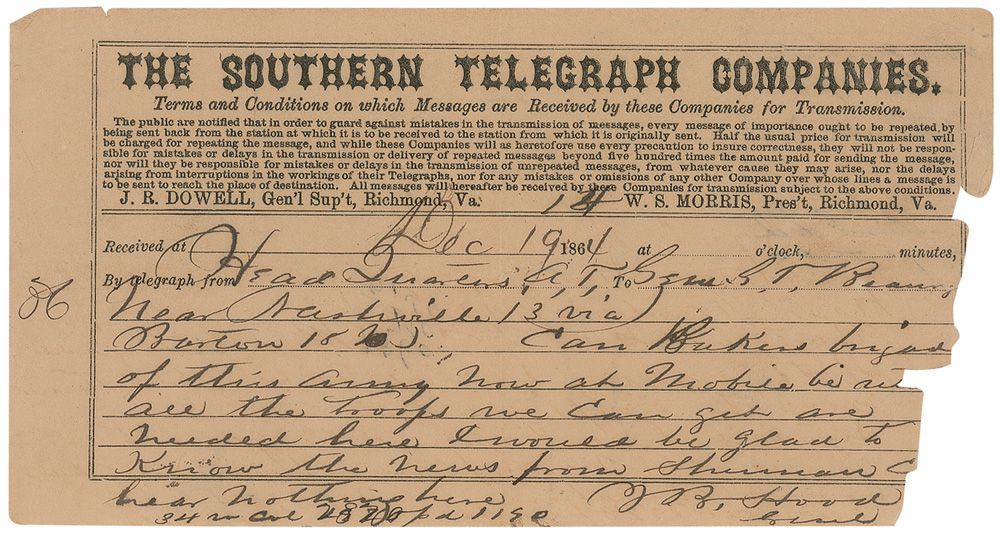 THE SOUTHERN TELEGRAPH COMPANIES.
Terms and Conditions on which Messages are Received by these Companies for Transmission.
The public are notified that in order to guard against mistakes in the transmission of messages, every message of importance ought to be repeated, by
being sent back from the station at which it is to be received to the station from which it is originally sent. Half the usual price for transmission will
be charged for repeating the message, and while these Companies will as heretofore use every precaution to insure correctness, they will not be respon-
sible for mistakes or delays in the transmission or delivery of repeated messages beyond five hundred times the amount paid for sending the message,
nor will they be responsible for mistakes or delays in the transmission of unrepeated messages, from whatever cause they may arise, nor the delays
arising from interruptions in the workings of their Telegraphs, nor for any mistakes or omissions of any other Company over whose lines a message is
to be sent to reach the place of destination. All messages will hereafter be received by these Companies for transmission subject to the above conditions.
J. R. DOWELL, Gen'l Sup't, Richmond, Va. 14 W. S. MORRIS, Pres't, Richmond, Va.
Received at Dec 19 1864 at o'clock, minutes,
By telegraph from Head Quarters, A, T, To Genl G. T. Beaure
Near Nashville 13 via
Barton 18 Can Bakers brigad
of this army now at Mobile be
all the troops we can get are
needed here I would be glad to
Know the news from Sherman
hear nothing here J B, Hood
Genl
34 w Col pd 1190